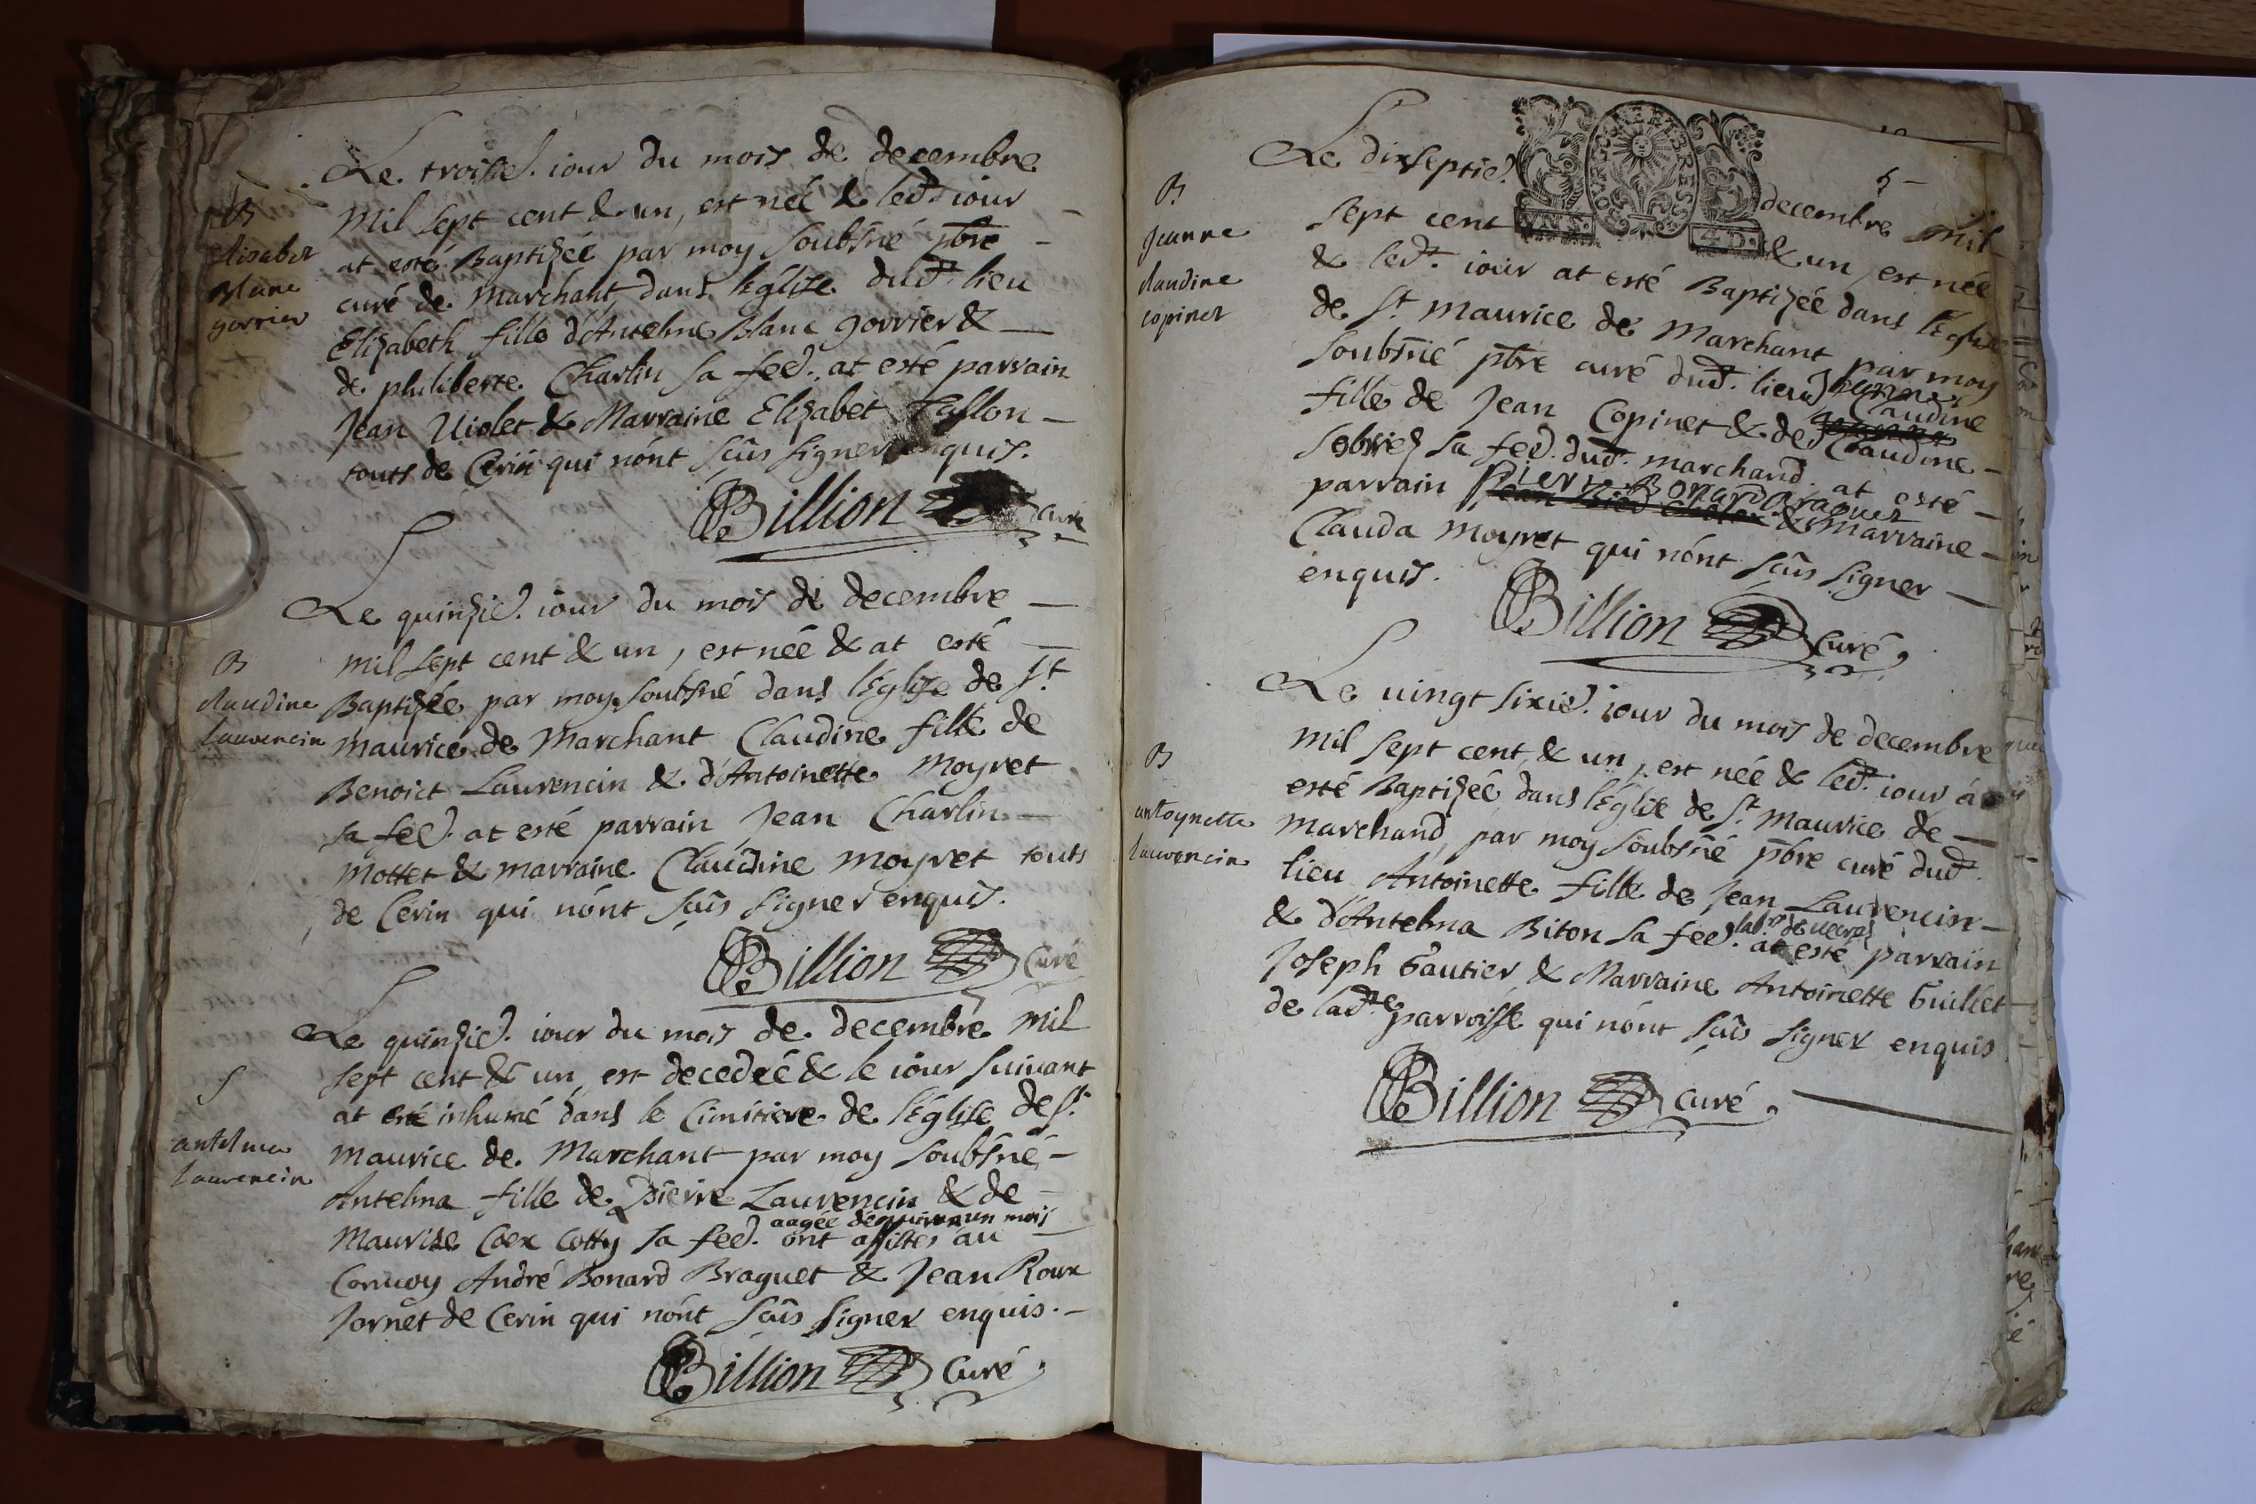 Le troisie. iour du mois de decembre
B
Elisabet
Blanc
gorrier
mil sept cent & un, est née & led. iour
at esté Baptizée par moy soubsné pbre
curé de Marchant dans l'église dud. lieu
Elizabeth fille d'Antelme Blanc gorrier &
de philiberte Charlin sa fee. at esté parrain
Jean Uiolet & Marraine Elizabet
touts de Cerin qui nónt sçûs signer enquis.
Billion curé
Le quinzie. iour du mois de decembre
B
claudine
laurencin
mil sept cent & un, est née & at esté
Baptizée par moy soubsné dans l'église de St
maurice de Marchant Claudine fille de
Benoict Laurencin & d'Antoinette Moyret
sa fee. at esté parrain Jean Charlin
mottet & marraine Claudine moyret touts
de Cerin qui nónt sçûs signer enquis.
Billion Curé
Le quinzie. iour du mois de decembre mil
S
antelma
laurencin
sept cent & un est decedeé & le iour suivant
at esté inhumé dans le Cimitiere de l'Église de St
maurice de Marchant par moy soubsné
Antelma fille de Pierre Laurencin & de
aagée un mois
Maurise Coex cotty sa fee. ont assistes au
Conuoy André Bonard Braguet & Jean Roux
Jornet de Cerin qui nónt sçûs signer enquis.
Billion Curé
5
Le dixseptie. decembre mil
B
Jeanne
claudine
copinet
sept cent & un, est née
VN S. 4 D.
& led. iour at esté Baptizée dans l'Église
de St. maurice de Marchant par moy
soubsné pbre curé dud. lieu Jeanne
Claudine
fille de Jean Copinet & de Claudine
sobriez sa fee. dud. marchand. at esté
Pierre Bonard Braguet
parrain & Marraine
Clauda Moyret qui nónt sçûs signer
enquis.
Billion Curé
Le uingt sixie. iour du mois de decembre
B
antoynette
laurencin
mil sept cent, & un, est née & led. iour á
esté Baptizée dans l'église de St maurice de
Marchand, par moy soubsné pbre curé dud.
lieu Antoinette fille de Jean Laurencin
& d'Antelma Biton sa fee. at esté parrain
Joseph Gautier & Marraine Antoinette Guillet
de lad.e parroisse qui nónt sçûs signer enquis
Billion curé